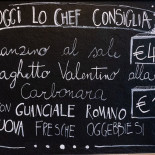 OGGI LO CHEF CONSIGLIA
anzino al sale €4
aghetto Valentino alla
Carbonara
con GUANCIALE ROMANO €
UOVA FRESCHE